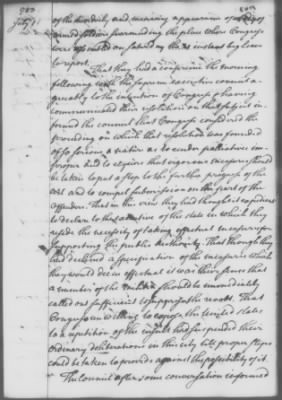 of the disorderly and menacing appearance of a body of
armed soldiers surrounding the place where Congress
were assembled on saturday the 21 instant beg leave
to report.
That they had a conference the morning
following with the supreme executive council a-
greeably to the intention of Congress & having
communicated their resolution on that subject in-
formed the council that Congress considered the
proceeding on which that resolution was founded
of so serious a nature as to render palliatives im-
proper and to require that vigorous measures should
be taken to put a stop to the further progress of the
evil and to compel submission on the part of the
offenders. That in this view they had thought it expedient
to declare to the executive of the state in which they
reside the necessity of taking effectual measures for
supporting the public authority. That though they
had declined a specification of the measures which
they would deem effectual it was their sense that
a number of the militia should be immediately
called out sufficient to suppress the revolt. That
Congress unwilling to expose the United States
to a repetition of the insult had suspended their
ordinary deliberations in this city till proper steps
could be taken to provide against the possibility of it.
The Council after some conversation informed